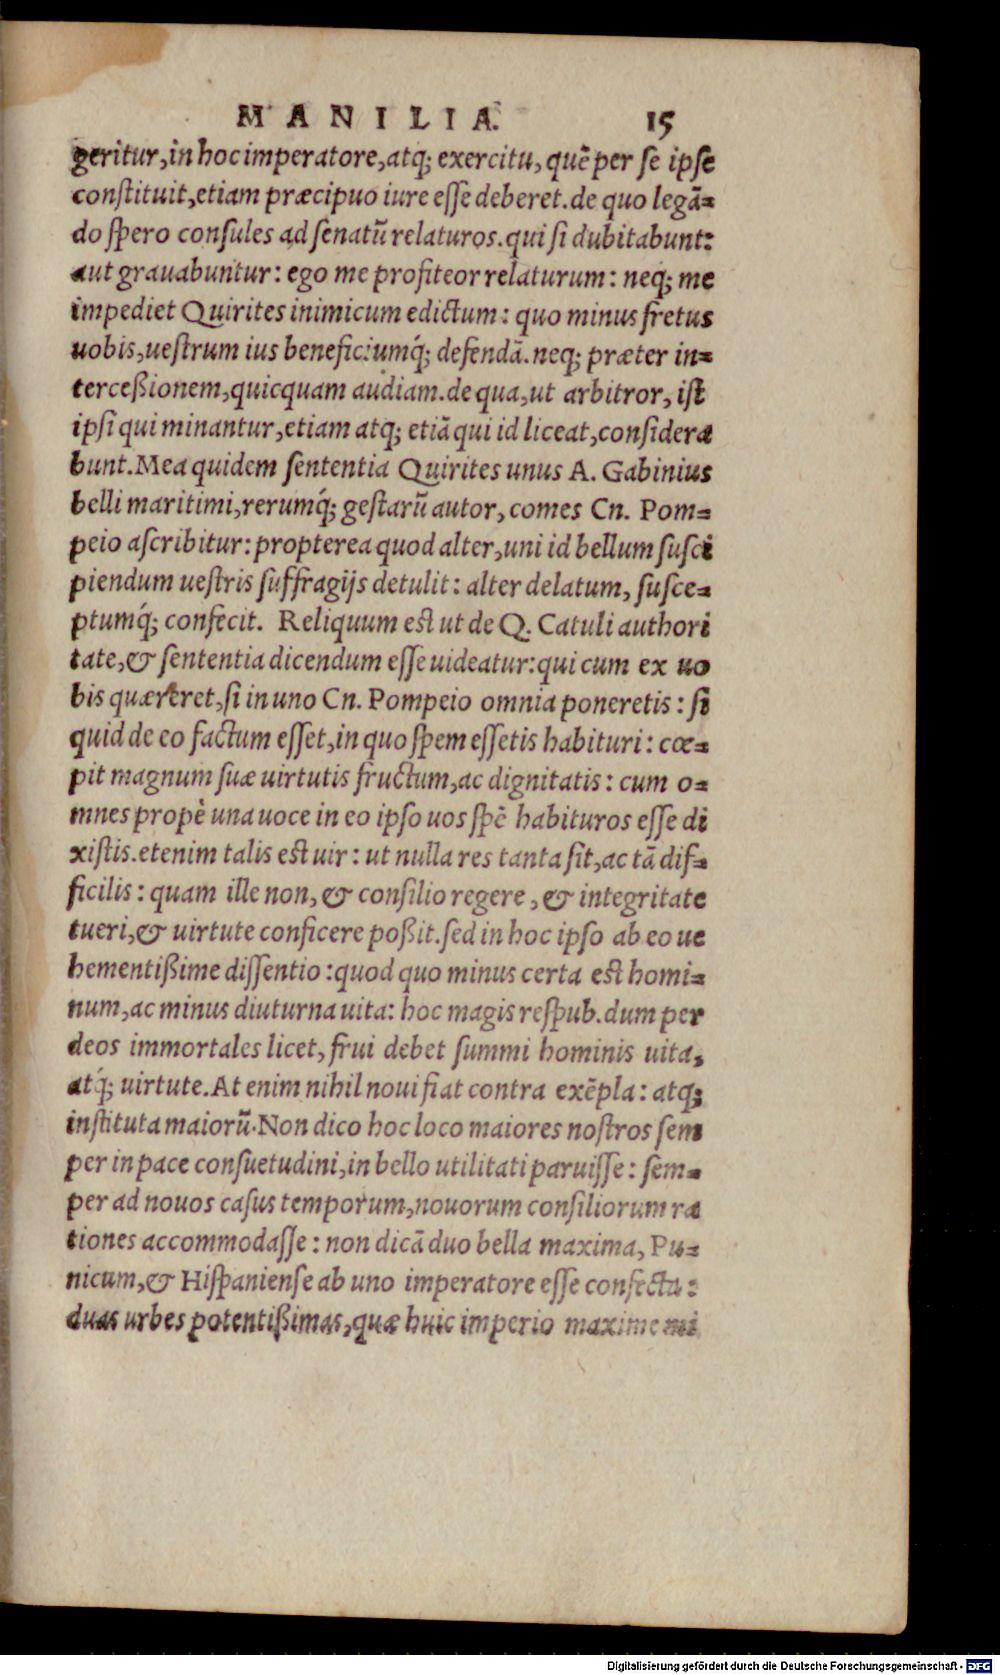 MANILIA. 15
geritur, in hoc imperatore, atq; exercitu, quē per se ipse
constituit, etiam præcipuo iure esse deberet. de quo legā=
do spero consules ad senatū relaturos. qui si dubitabunt:
aut grauabuntur: ego me profiteor relaturum: neq; me
impediet Quirites inimicum edictum: quo minus fretus
uobis, uestrum ius beneficiumq́; defendā. neq; præter in=
terceßionem, quicquam audiam. de qua, ut arbitror, ist
ipsi qui minantur, etiam atq; etiā qui id liceat, considera
bunt. Mea quidem sententia Quirites unus A. Gabinius
belli maritimi, rerumq́; gestarū autor, comes Cn. Pom=
peio ascribitur: propterea quod alter, uni id bellum susci
piendum uestris suffragijs detulit: alter delatum, susce=
ptumq́; confecit. Reliquum est ut de Q. Catuli authori
tate, & sententia dicendum esse uideatur: qui cum ex uo
bis quæreret, si in uno Cn. Pompeio omnia poneretis: si
quid de eo factum esset, in quo spem essetis habituri: cœ=
pit magnum suæ uirtutis fructum, ac dignitatis: cum o=
mnes propè una uoce in eo ipso uos spē habituros esse di
xistis. etenim talis est uir: ut nulla res tanta sit, ac tā dif=
ficilis: quam ille non, & consilio regere, & integritate
tueri, & uirtute conficere poßit. sed in hoc ipso ab eo ue
hementißime dissentio: quod quo minus certa est homi=
num, ac minus diuturna uita: hoc magis respub. dum per
deos immortales licet, frui debet summi hominis uita,
atq́; uirtute. At enim nihil noui fiat contra exēpla: atq;
instituta maiorū. Non dico hoc loco maiores nostros sem
per in pace consuetudini, in bello utilitati paruisse: sem=
per ad nouos casus temporum, nouorum consiliorum ra
tiones accommodasse: non dicā duo bella maxima, Pu=
nicum, & Hispaniense ab uno imperatore esse confecta:
duas urbes potentißimas, quæ huic imperio maxime mi
Digitalisierung gefördert durch die Deutsche Forschungsgemeinschaft - DFG